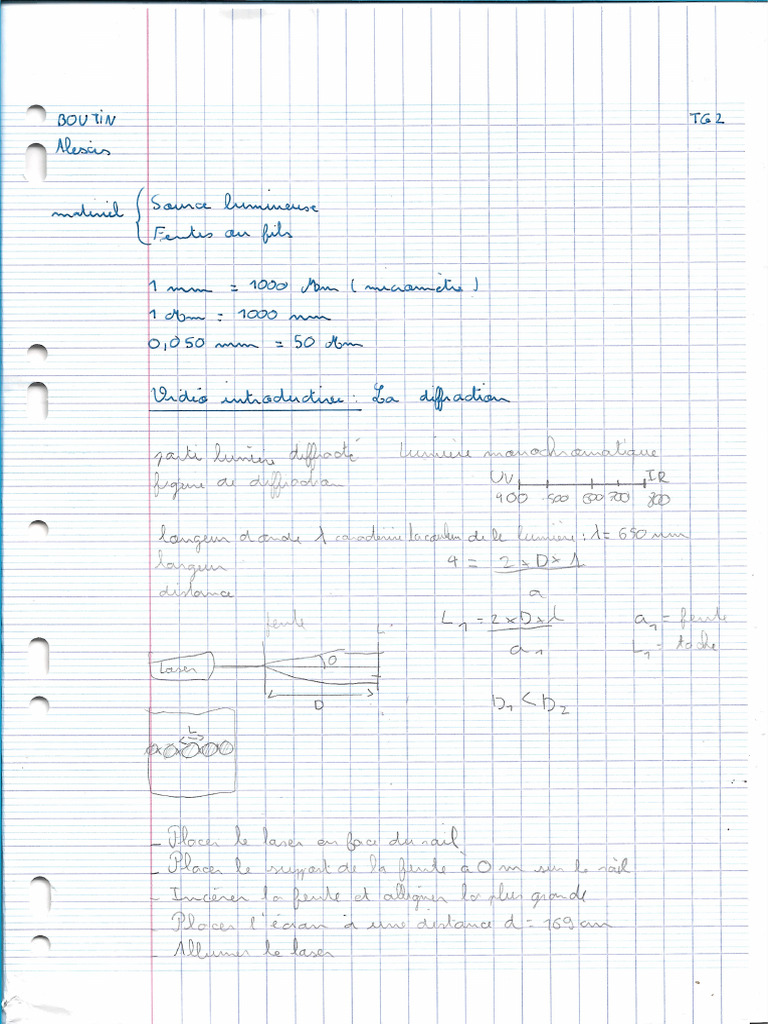 BOUTIN TG2
Alexis
matériel { Source lumineuse
Fentes ou fils
1 mm = 1000 µm (micromètre)
1 µm = 1000 nm
0,050 mm = 50 µm
Vidéo introductive : La diffraction
parti lumière diffracté Lumière monochromatique
figure de diffraction UV IR
400 500 600 700 800
longeur d'onde λ caractérise la couleur de la lumière : λ = 650 nm
largeur 4 = 2 x D x λ
distance a
fente L₁ = 2 x D x λ a₁ = fente
a₁ L₁ = tache
Laser θ
D D₁ < D₂
L
- Placer le laser en face du rail
- Placer le support de la fente à 0 m sur le rail
- Incérer la fente et alligner la plus grande
- Placer l'écran à une distance d = 169 cm
- Allumer le laser